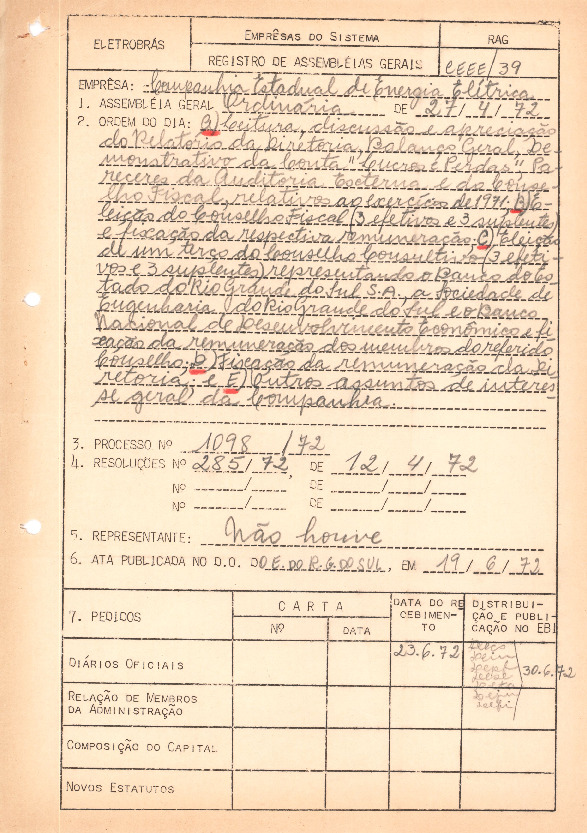 ELETROBRÁS
EMPRÊSAS DO SISTEMA
REGISTRO DE ASSEMBLÉIAS GERAIS
RAG
CEEE/39
EMPRÊSA: Companhia Estadual de Energia Elétrica
1. ASSEMBLÉIA GERAL Ordinária DE 27/4/72
2. ORDEM DO DIA: A) Leitura, discussão e apreciação
do Relatório da Diretoria, Balanço Geral, De-
monstrativo da Conta "Lucros e Perdas", Pa-
receres da Auditoria Externa e do Conse-
lho Fiscal, relativos ao exercício de 1971; B) E-
leição do Conselho Fiscal (3 efetivos e 3 suplentes)
e fixação da respectiva remuneração; C) Eleição
de um terço do Conselho Consultivo (3 efeti-
vos e 3 suplentes) representando o Banco do Es-
tado do Rio Grande do Sul S.A., a Sociedade de
Engenharia do Rio Grande do Sul e o Banco
Nacional de Desenvolvimento Econômico e fi-
xação da remuneração dos membros do referido
Conselho; D) Fixação da remuneração da Di-
retoria; e E) Outros assuntos de interes-
se geral da Companhia.
3. PROCESSO Nº 1098/72
4. RESOLUÇÕES Nº 285/72, DE 12/4/72
Nº / DE / /
Nº / DE / /
5. REPRESENTANTE: Não houve
6. ATA PUBLICADA NO D.O. DO E. DO R.G. DO SUL, EM 19/6/72
7. PEDIDOS
CARTA
Nº
DATA
DATA DO RE
CEBIMEN-
TO
DISTRIBUI-
ÇÃO E PUBLI-
CAÇÃO NO EBI
DIÁRIOS OFICIAIS
23.6.72
30.6.72
RELAÇÃO DE MEMBROS
DA ADMINISTRAÇÃO
COMPOSIÇÃO DO CAPITAL
NOVOS ESTATUTOS